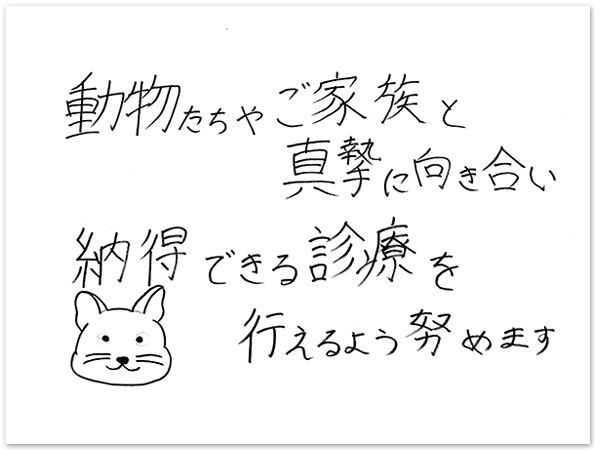 動物たちやご家族と
真摯に向き合い
納得できる診療を
行えるよう努めます